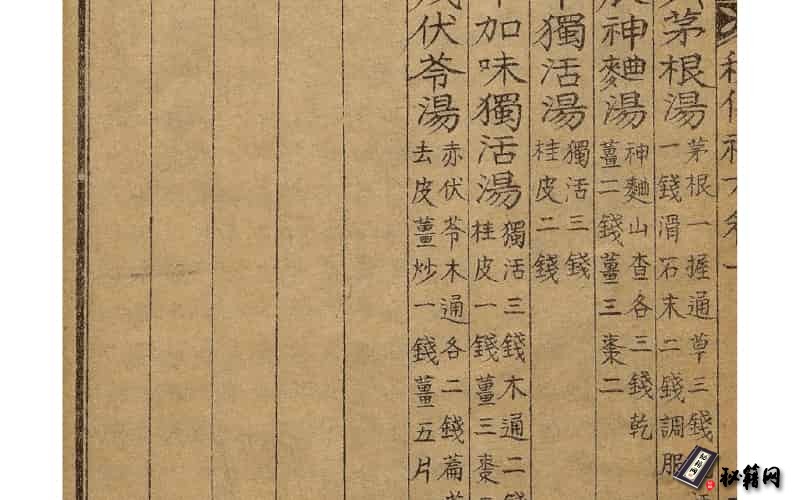 茅根湯
茅根一握通草三錢
一錢滑石末二錢調服
神麯湯
神麯山査各三錢乾
薑二錢薑三棗二
獨活湯
獨活三錢
桂皮二錢
加味獨活湯
獨活三錢木通二錢
桂皮一錢薑三棗
伏苓湯
赤伏苓木通各二錢萹
去皮薑炒一錢薑五片
秘籍网